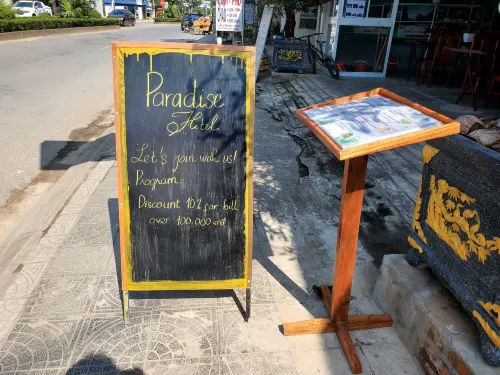 Paradise
Hotel
Let's join with us!
Program
Discount 10% for bill
over 100.000 vnd